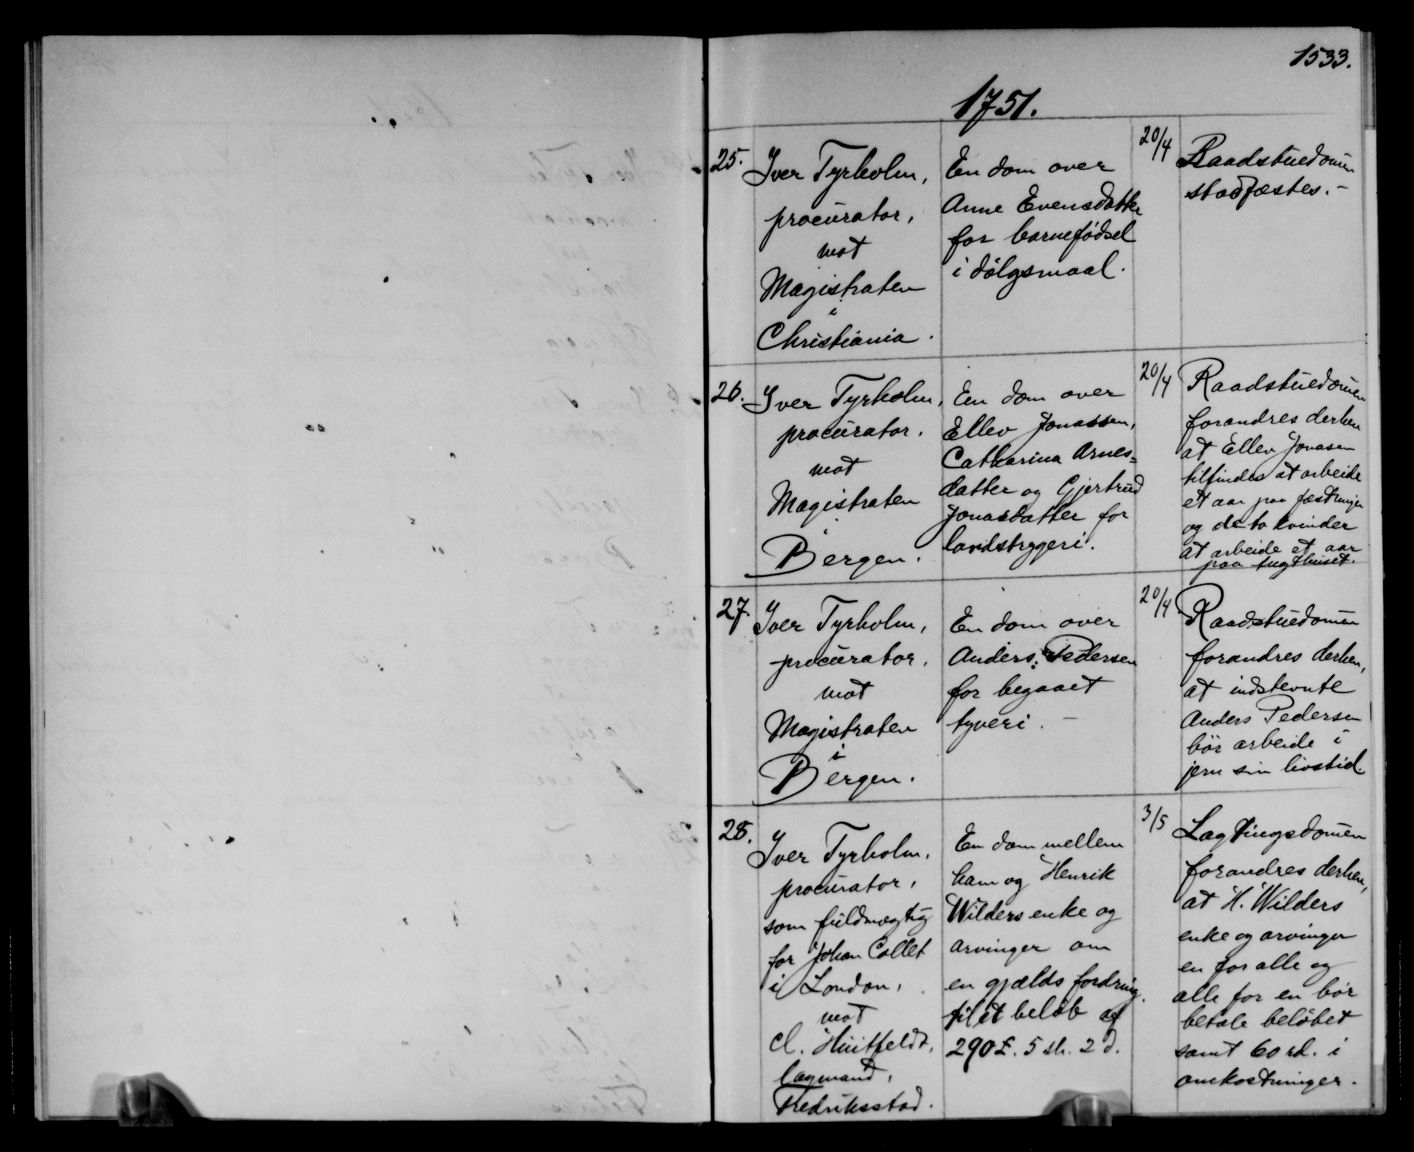 1533.
1751.
25.
Iver Tyrholm,
procurator,
mot
Magistraten
i
Christiania.
En dom over
Anne Evensdatter
for barnefødsel
i dølgsmaal.
20/4
Raadstuedomen
stadfæstes.-
26.
Iver Tyrholm,
procurator.
mot
Magistraten
i
Bergen.
En dom over
Ellev Jonassen,
Catharina Arnes=
datter og Gjertrud
Jonasdatter for
landstrygeri.
20/4
Raadstuedomen
forandres derhen
at Ellev Jonasen
tilfindes at arbeide
et aar paa fæstningen
og de to kvinder
at arbeide et aar
paa tugthuset.
27.
Iver Tyrholm,
procurator.
mot
Magistraten
i
Bergen.
En dom over
Anders Pedersen
for begaaet
tyveri. -
20/4
Raadstuedomen
forandres derhen,
at indstevnte
Anders Pedersen
bør arbeide i
jern sin livstid
28.
Iver Tyrholm,
procurator,
som fuldmægtig
for Johan Collet
i London,
mot
Cl. Huitfeldt,
lagmand,
Fredriksstad.
En dom mellem
ham og Henrik
Wilders enke og
arvinger om
en gjælds fordring
til et beløb af
290£. 5 sh. 2 d.
3/5
Lagtingsdomen
forandres derhen,
at H. Wilders
enke og arvinger
en for alle og
alle for en bør
betale beløbet
samt 60 rd. i
omkostninger.